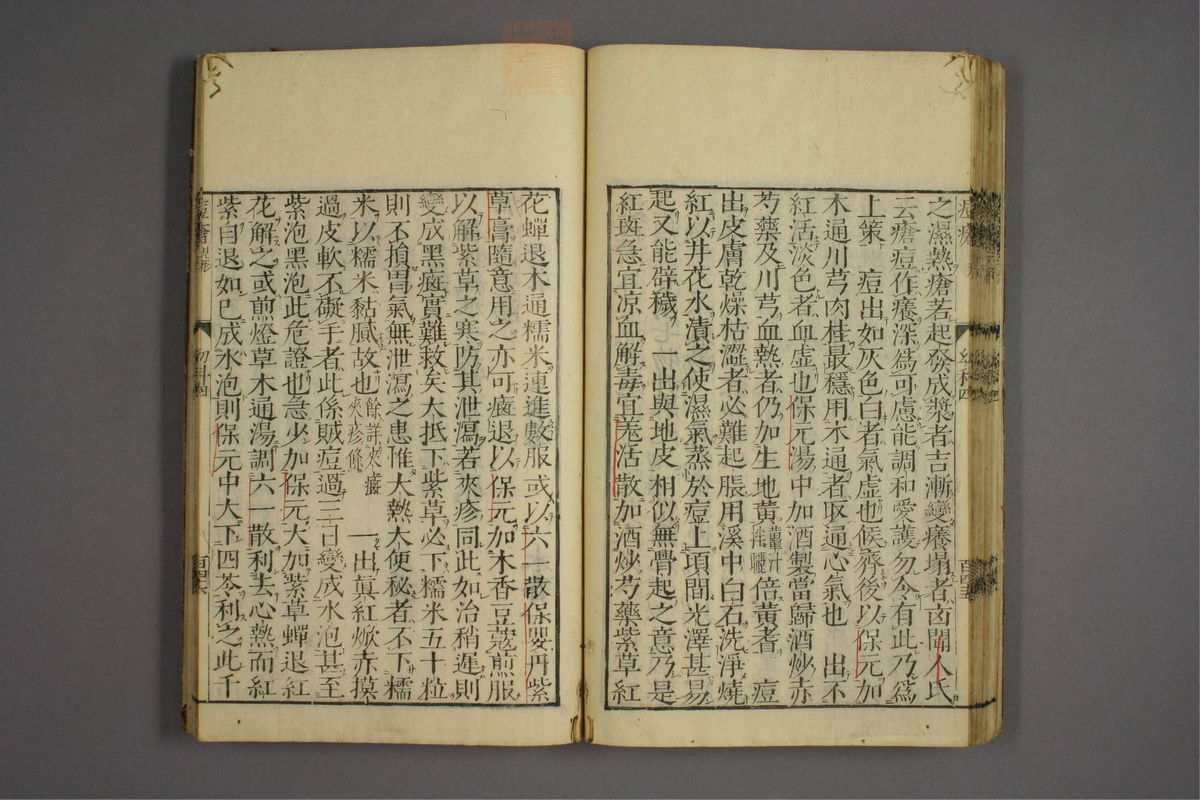 之濕熱瘡若起發成漿者吉漸變癢塌者凶聞人氏
云瘡痘作癢深爲可慮能調和愛護勿令有此乃爲
上策　痘出如灰色白者氣虛也候齊後以保元加
木通川芎肉桂最穩用木通者取通心氣也　出不
紅活淡色者血虛也保元湯中加酒製當歸酒炒赤
芍藥及川芎血熱者仍加生地黃薑汁拌曬倍黃耆　痘
出皮膚乾燥枯澀者必難起脹用溪中白石洗淨燒
紅以井花水漬之使濕氣蒸於痘上項間光澤甚易
起又能辟穢　一出與地皮相似無骨起之意乃是
紅斑急宜凉血解毒宜羗活散加酒炒芍藥紫草紅
花蟬退木通糯米連進數服或以六一散保嬰丹紫
草膏隨意用之亦可癍退以保元加木香豆蔻煎服
以解紫草之寒防其泄瀉若夾疹同此如治稍遲則
變成黑癍實難救矣大抵下紫草必下糯米五十粒
則不損胃氣無泄瀉之患惟大熱大便秘者不下糯
米以糯米黏膩故也餘詳夾癍夾疹條　一出眞紅焮赤摸
過皮軟不礙手者此係賊痘過三日變成水泡甚至
紫泡黑泡此危證也急少加保元大加紫草蟬退紅
花解之或煎燈草木通湯調六一散利去心熱而紅
紫自退如已成水泡則保元中大下四苓利之此千
幼科四